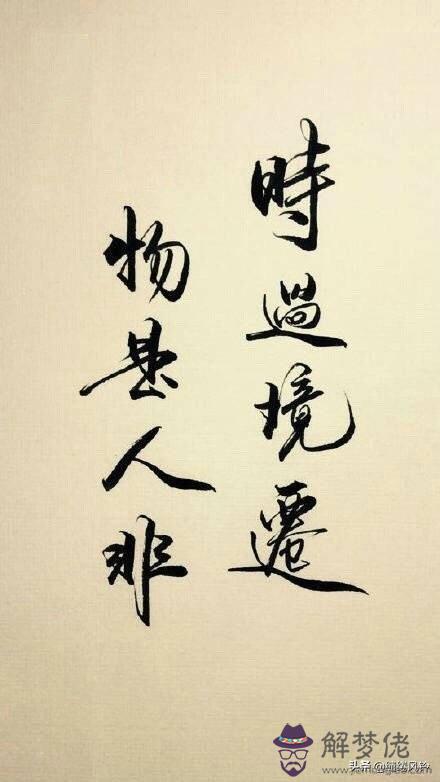 時過境遷
物是人非
解梦佬
头条